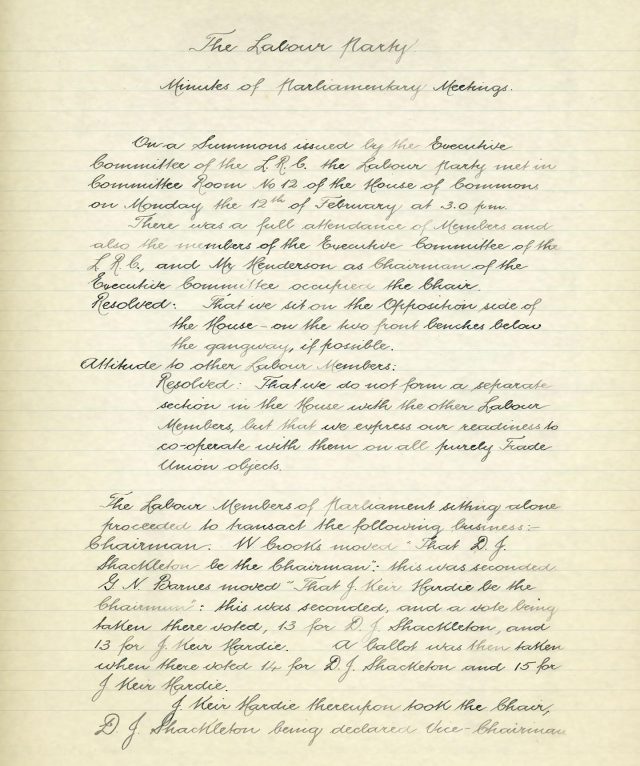 The Labour Party
Minutes of Parliamentary Meetings.
On a Summons issued by the Executive
Committee of the L.R.C. the Labour Party met in
Committee Room No 12 of the House of Commons
on Monday the 12th of February at 3.0 pm.
There was a full attendance of Members and
also the members of the Executive Committee of the
L.R.C., and Mr Henderson as Chairman of the
Executive Committee occupied the Chair.
Resolved: That we sit on the Opposition side of
the House - on the two front benches below
the gangway, if possible.
Attitude to other Labour Members:
Resolved: That we do not form a separate
section in the House with the other Labour
Members, but that we express our readiness to
co-operate with them on all purely Trade
Union objects.
The Labour Members of Parliament sitting alone
proceeded to transact the following business:-
Chairman. W Crooks moved "That D.J.
Shackleton be the Chairman": this was seconded
G.N. Barnes moved "That J. Keir Hardie be the
Chairman": this was seconded, and a vote being
taken there voted, 13 for D.J. Shackleton, and
13 for J. Keir Hardie. A ballot was then taken
when there voted 14 for D.J. Shackleton and 15 for
J Keir Hardie.
J. Keir Hardie thereupon took the Chair,
D.J. Shackleton being declared Vice-Chairman